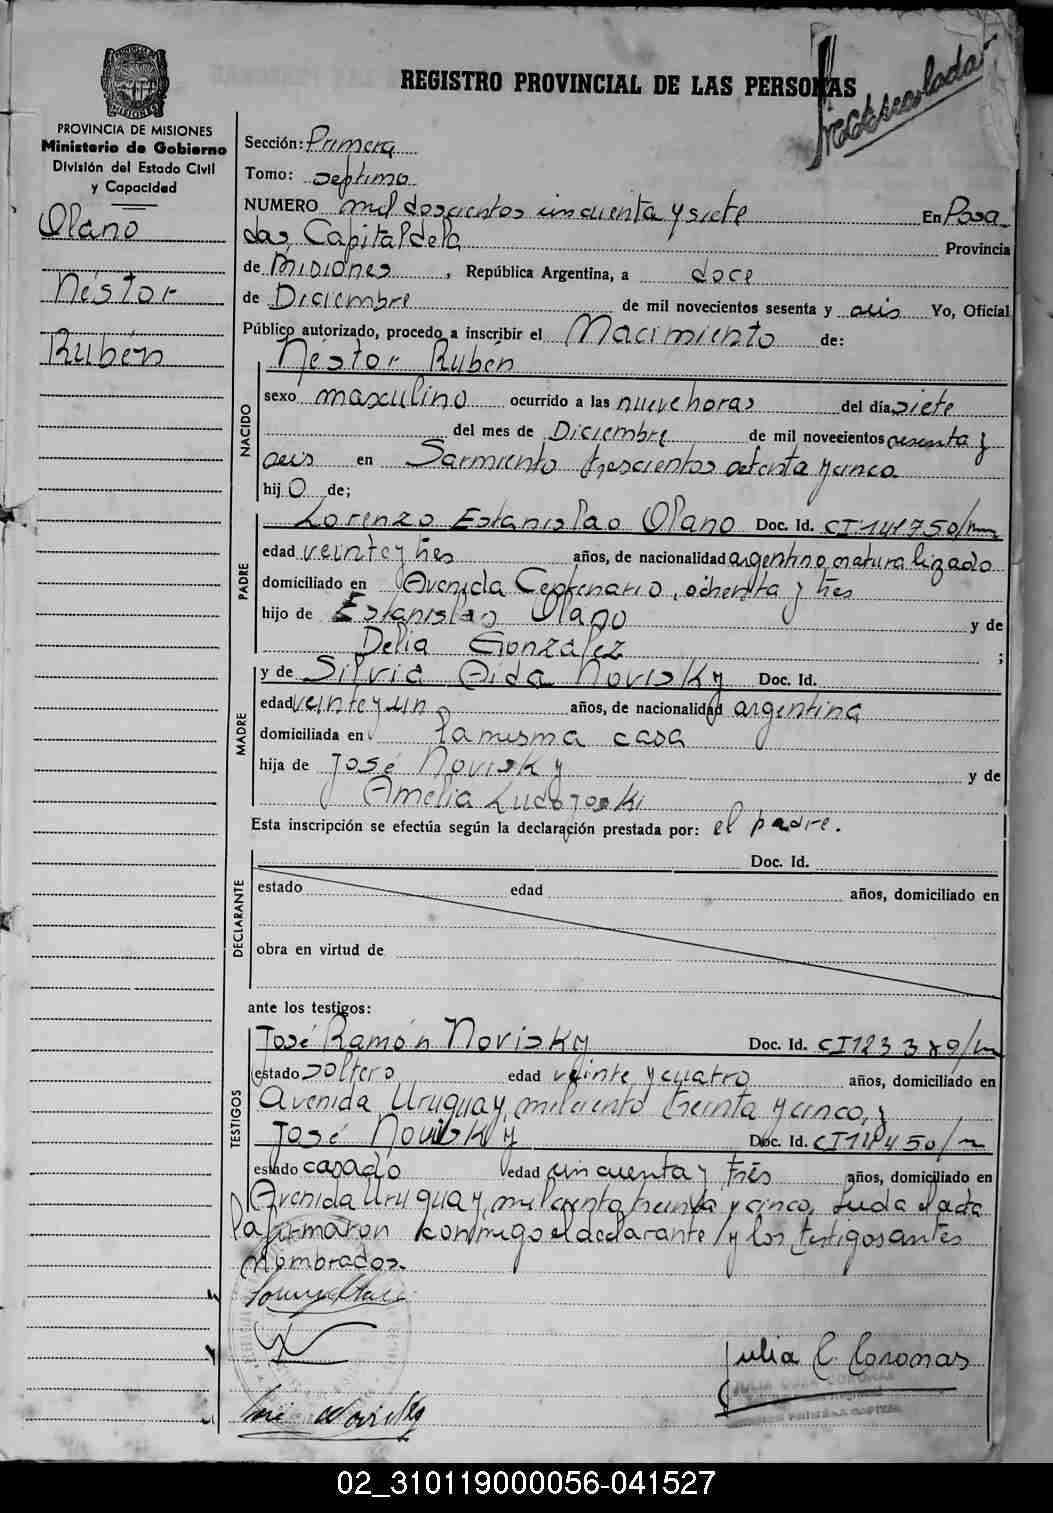 REGISTRO PROVINCIAL DE LAS PERSONAS
PROVINCIA DE MISIONES
Ministerio de Gobierno
División del Estado Civil
y Capacidad
Olano
Néstor
Rubén
Sección: Primera
Tomo: septimo
NUMERO mil doscientos cincuenta y siete En Posa
das, Capital de la Provincia
de Misiones, República Argentina, a doce
de Diciembre de mil novecientos sesenta y seis Yo, Oficial
Público autorizado, procedo a inscribir el Nacimiento de:
Néstor Rubén
NACIDO
sexo masculino ocurrido a las nueve horas del día siete
del mes de Diciembre de mil novecientos sesenta y
seis en Sarmiento trescientos setenta y cinco
hijo de;
PADRE
Lorenzo Estanislao Olano Doc. Id. CI 148750/m
edad veinte y tres años, de nacionalidad argentino naturalizado
domiciliado en Avenida Centenario, ochenta y tres
hijo de Estanislao Olano y de
Delia González ;
MADRE
y de Silvia Aida Novisky Doc. Id.
edad veinte y un años, de nacionalidad argentina
domiciliada en la misma casa
hija de José Novisky y de
Amelia
Esta inscripción se efectúa según la declaración prestada por: el padre.
DECLARANTE
Doc. Id.
estado edad años, domiciliado en
obra en virtud de
ante los testigos:
TESTIGOS
José Ramón Novisky Doc. Id. CI 123389/m
estado soltero edad veinte y cuatro años, domiciliado en
Avenida Uruguay, mil ciento treinta y cinco, y
José Novisky Doc. Id.
estado casado edad cincuenta y tres años, domiciliado en
Avenida Uruguay, mil ciento treinta y cinco. Leida el acta
la firmaron conmigo el declarante y los testigos antes
nombrados.
Julia C. Coronas
José Novisky
02_310119000056-041527